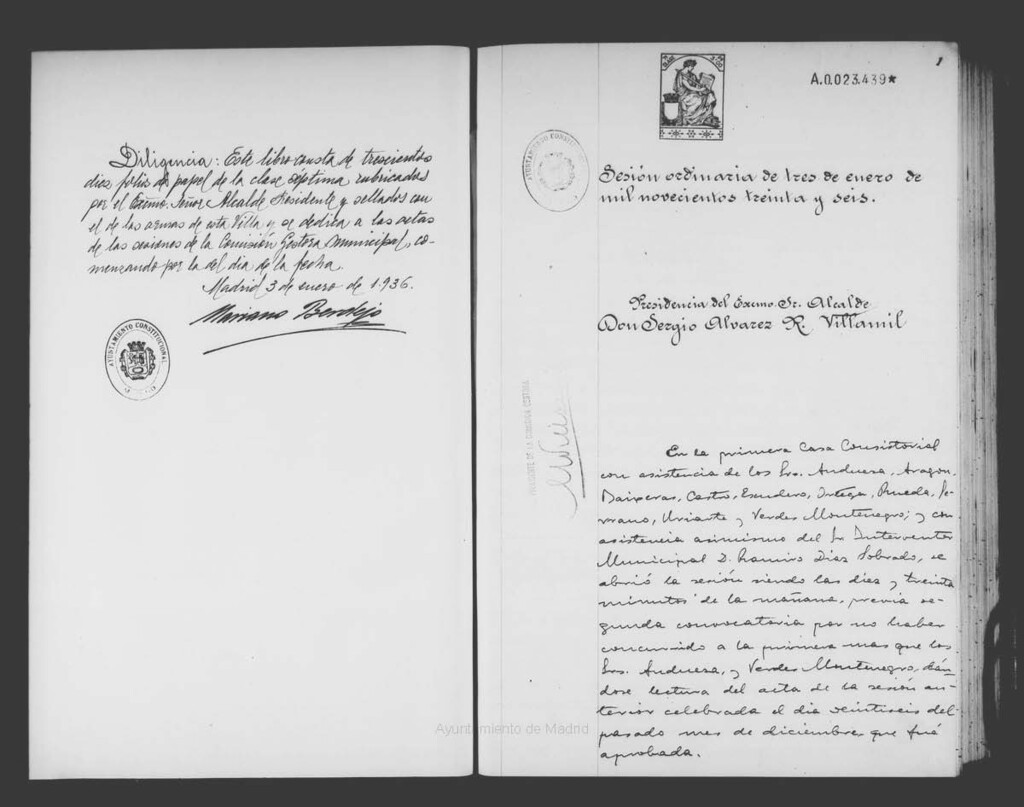 Diligencia: Este libro consta de trescientos
diez folios de papel de la clase séptima rubricados
por el Excmo. Señor Alcalde Presidente y sellados con
el de las armas de esta Villa y se dedica a las actas
de las sesiones de la Comisión Gestora Municipal, co-
menzando por la del dia de la fecha.
Madrid 3 de enero de 1.936.
Mariano Berdejo
AYUNTAMIENTO CONSTITUCIONAL
1
A.0.023.439*
AYUNTAMIENTO CONSTITUCIONAL
Sesión ordinaria de tres de enero de
mil novecientos treinta y seis.
Presidencia del Excmo. Sr. Alcalde
Don Sergio Alvarez R. Villamil
PRESIDENTE DE LA COMISION GESTORA
En la primera Casa Consistorial
con asistencia de los Sres. Anduesa, Aragon,
Baixeras, Castro, Escudero, Ortega, Rueda, Se-
rrano, Uriarte y Verdes Montenegro; y con
asistencia asimismo del Sr. Interventor
Municipal D. Ramiro Diaz Sobrado, se
abrió la sesión siendo las diez y treinta
minutos de la mañana, previa se-
gunda convocatoria por no haber
concurrido a la primera mas que los
Sres. Anduesa, y Verdes Montenegro, dán-
dose lectura del acta de la sesión an-
terior celebrada el dia veintiseis del
pasado mes de diciembre que fué
aprobada.
Ayuntamiento de Madrid